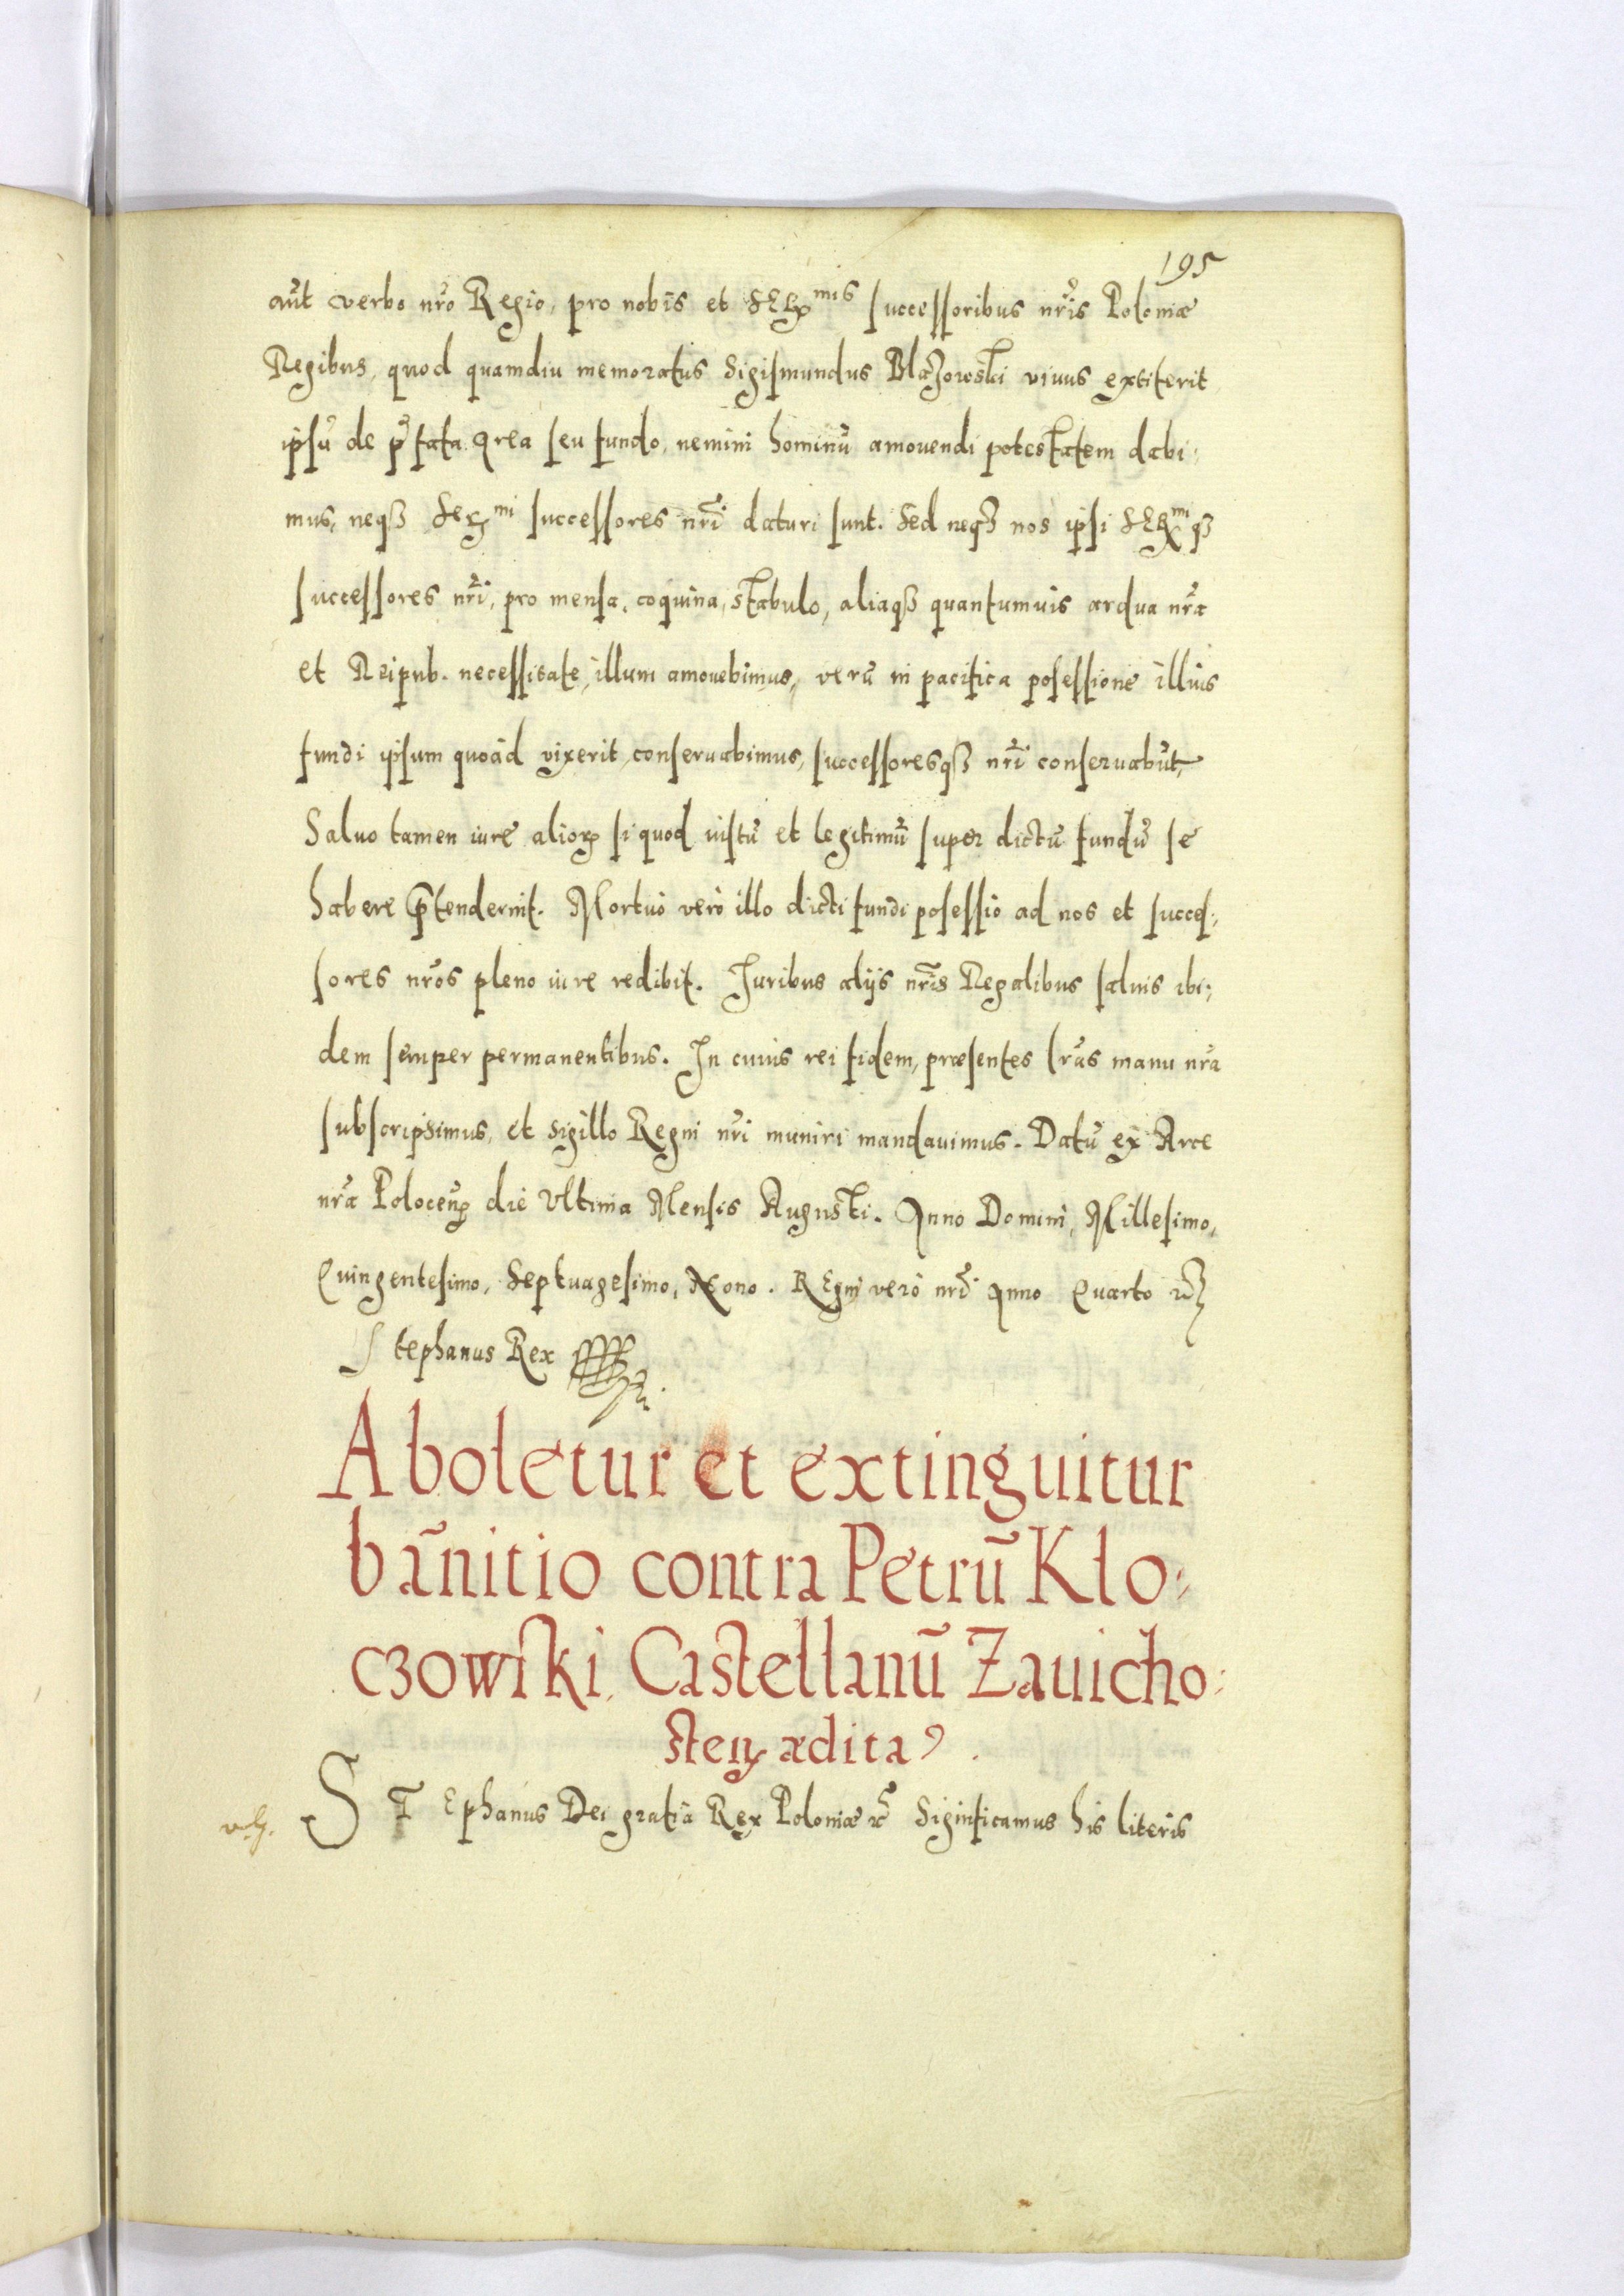 195
aūt verbo nr̃o Regio, pro nobis et SERmis successoribus nr̃is Poloniæ
Regibus, quod quamdiu memoratus Sigismundus Blażowski viuus extiterit
ipsū de p̃fata area seu fundo, nemini hominū amouendi potestatem dabi:
mus, neqꝫ Sermi successores nr̃i daturi sunt. Sed neqꝫ nos ipsi SERmiqꝫ
successores nr̃i, pro mensa, coquina, stabulo, aliaqꝫ quantumuis ardua nr̃a
et Reipub. necessitate, illum amouebimus, verū in pacifica posessione illius
fundi ipsum quoad vixerit conseruabimus, successoresqꝫ nr̃i conseruabūt,
Saluo tamen iure alioꝝ si quod iustū et legitimū super dictū fundū se
habere p̃tenderint. Mortuo vero illo dicti fundi posessio ad nos et succes:
sores nr̃os pleno iure redibit. Juribus alijs nr̃is Regalibus saluis ibi:
dem semper permanentibus. In cuius rei fidem, præsentes lr̃as manu nr̃a
subscripsimus, et sigillo Regni nr̃i muniri mandauimus. Datū ex Arce
nr̃a Poloceñ die Vltima Mensis Augusti. Anno Domini, Millesimo,
Quingentesimo, Septuagesimo, Nono. REgni vero nr̃i Anno Quarto
Stephanus Rex
Aboletur et extinguitur
bañitio contra Petrū Klo:
czowski, Castellanū Zauicho:
steñ ædita
STEphanus Dei gratia Rex Poloniæ Significamus his literis